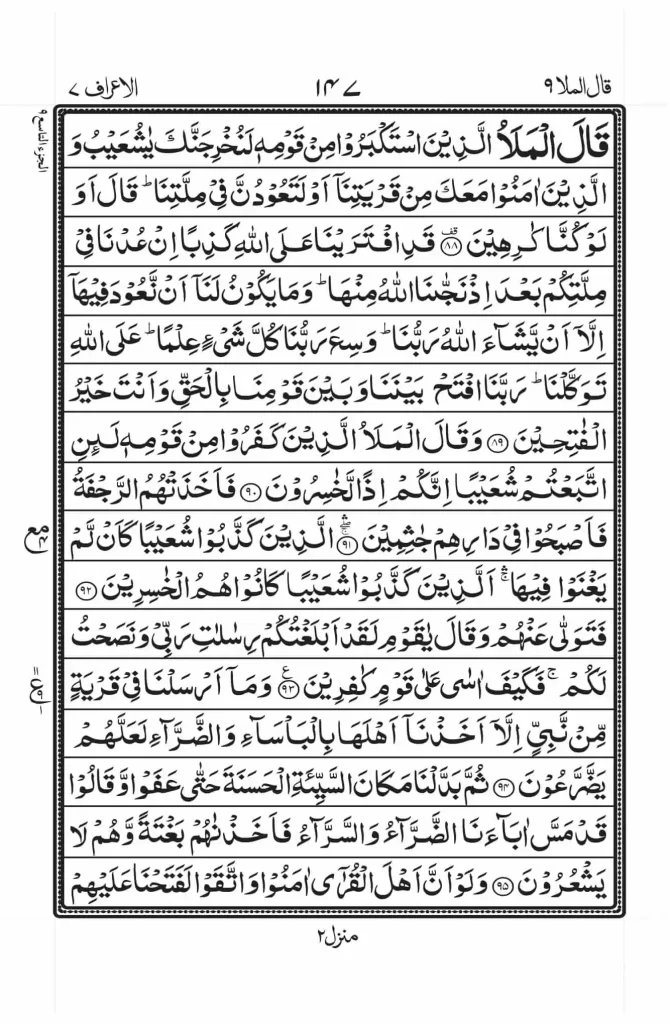 قال الملا ٩
١٤٧
الاعراف ٧
الجزء التاسع ٩
قَالَ الْمَلَاُ الَّذِيْنَ اسْتَكْبَرُوْا مِنْ قَوْمِهٖ لَنُخْرِجَنَّكَ يٰشُعَيْبُ وَ
الَّذِيْنَ اٰمَنُوْا مَعَكَ مِنْ قَرْيَتِنَاۤ اَوْ لَتَعُوْدُنَّ فِيْ مِلَّتِنَا ؕ قَالَ اَوَ
لَوْ كُنَّا كٰرِهِيْنَ ۟ۚ ﴿٨٨﴾ قَدِ افْتَرَيْنَا عَلَى اللّٰهِ كَذِبًا اِنْ عُدْنَا فِيْ
مِلَّتِكُمْ بَعْدَ اِذْ نَجّٰىنَا اللّٰهُ مِنْهَا ؕ وَمَا يَكُوْنُ لَنَاۤ اَنْ نَّعُوْدَ فِيْهَاۤ
اِلَّاۤ اَنْ يَّشَآءَ اللّٰهُ رَبُّنَا ؕ وَسِعَ رَبُّنَا كُلَّ شَيْءٍ عِلْمًا ؕ عَلَى اللّٰهِ
تَوَكَّلْنَا ؕ رَبَّنَا افْتَحْ بَيْنَنَا وَبَيْنَ قَوْمِنَا بِالْحَقِّ وَاَنْتَ خَيْرُ
الْفٰتِحِيْنَ ﴿٨٩﴾ وَقَالَ الْمَلَاُ الَّذِيْنَ كَفَرُوْا مِنْ قَوْمِهٖ لَئِنِ
اتَّبَعْتُمْ شُعَيْبًا اِنَّكُمْ اِذًا لَّخٰسِرُوْنَ ﴿٩٠﴾ فَاَخَذَتْهُمُ الرَّجْفَةُ
فَاَصْبَحُوْا فِيْ دَارِهِمْ جٰثِمِيْنَ ﴿٩١﴾ الَّذِيْنَ كَذَّبُوْا شُعَيْبًا كَاَنْ لَّمْ
يَغْنَوْا فِيْهَا ۛۚ اَلَّذِيْنَ كَذَّبُوْا شُعَيْبًا كَانُوْا هُمُ الْخٰسِرِيْنَ ﴿٩٢﴾
فَتَوَلّٰى عَنْهُمْ وَقَالَ يٰقَوْمِ لَقَدْ اَبْلَغْتُكُمْ رِسٰلٰتِ رَبِّيْ وَنَصَحْتُ
لَكُمْ ۚ فَكَيْفَ اٰسٰى عَلٰى قَوْمٍ كٰفِرِيْنَ ﴿٩٣﴾ وَمَاۤ اَرْسَلْنَا فِيْ قَرْيَةٍ
مِّنْ نَّبِيٍّ اِلَّاۤ اَخَذْنَاۤ اَهْلَهَا بِالْبَاْسَآءِ وَالضَّرَّآءِ لَعَلَّهُمْ
يَضَّرَّعُوْنَ ﴿٩٤﴾ ثُمَّ بَدَّلْنَا مَكَانَ السَّيِّئَةِ الْحَسَنَةَ حَتّٰى عَفَوْا وَّقَالُوْا
قَدْ مَسَّ اٰبَآءَنَا الضَّرَّآءُ وَالسَّرَّآءُ فَاَخَذْنٰهُمْ بَغْتَةً وَّهُمْ لَا
يَشْعُرُوْنَ ﴿٩٥﴾ وَلَوْ اَنَّ اَهْلَ الْقُرٰۤى اٰمَنُوْا وَاتَّقَوْا لَفَتَحْنَا عَلَيْهِمْ
منزل ٢